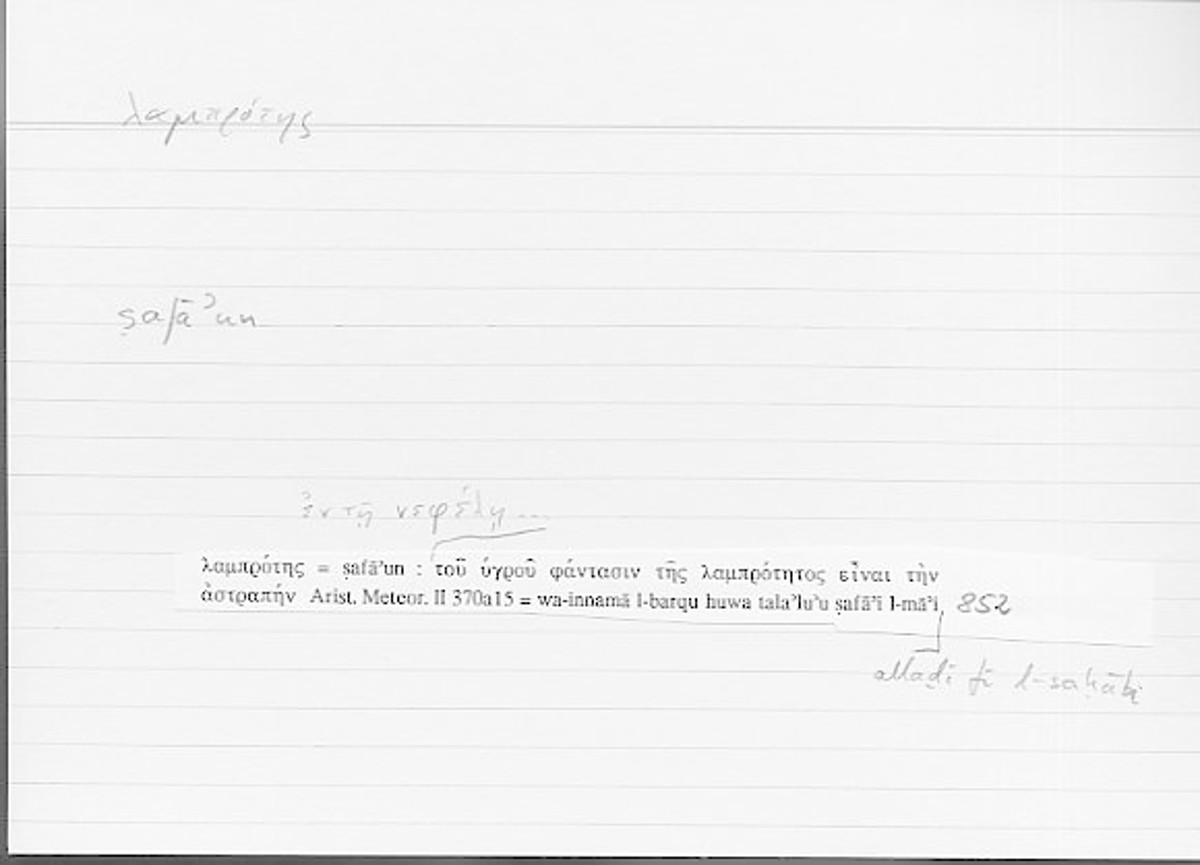 λαμπρότης
ṣafāʾun
ἐν τῇ νεφέλῃ ...
λαμπρότης = ṣafāʾun : τοῦ ὑγροῦ φάντασιν τῆς λαμπρότητος εἶναι τὴν
ἀστραπήν Arist. Meteor. II 370a15 = wa-innamā l-barqu huwa talaʾluʾu ṣafāʾi l-māʾi, 852
allaḏī fī l-saḥābi